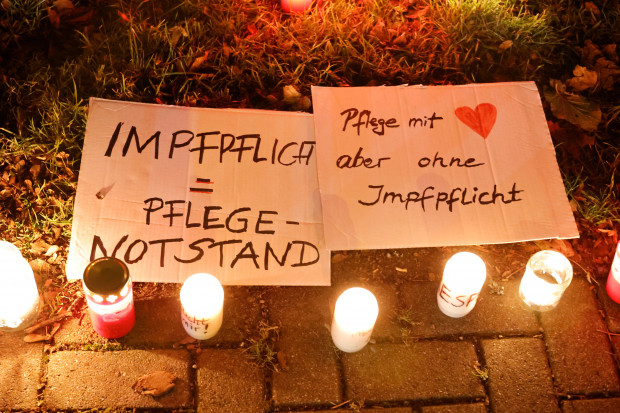 IMPFPFLICHT
=
PFLEGE-
NOTSTAND
Pflege mit ♥
aber ohne
Impfpflicht